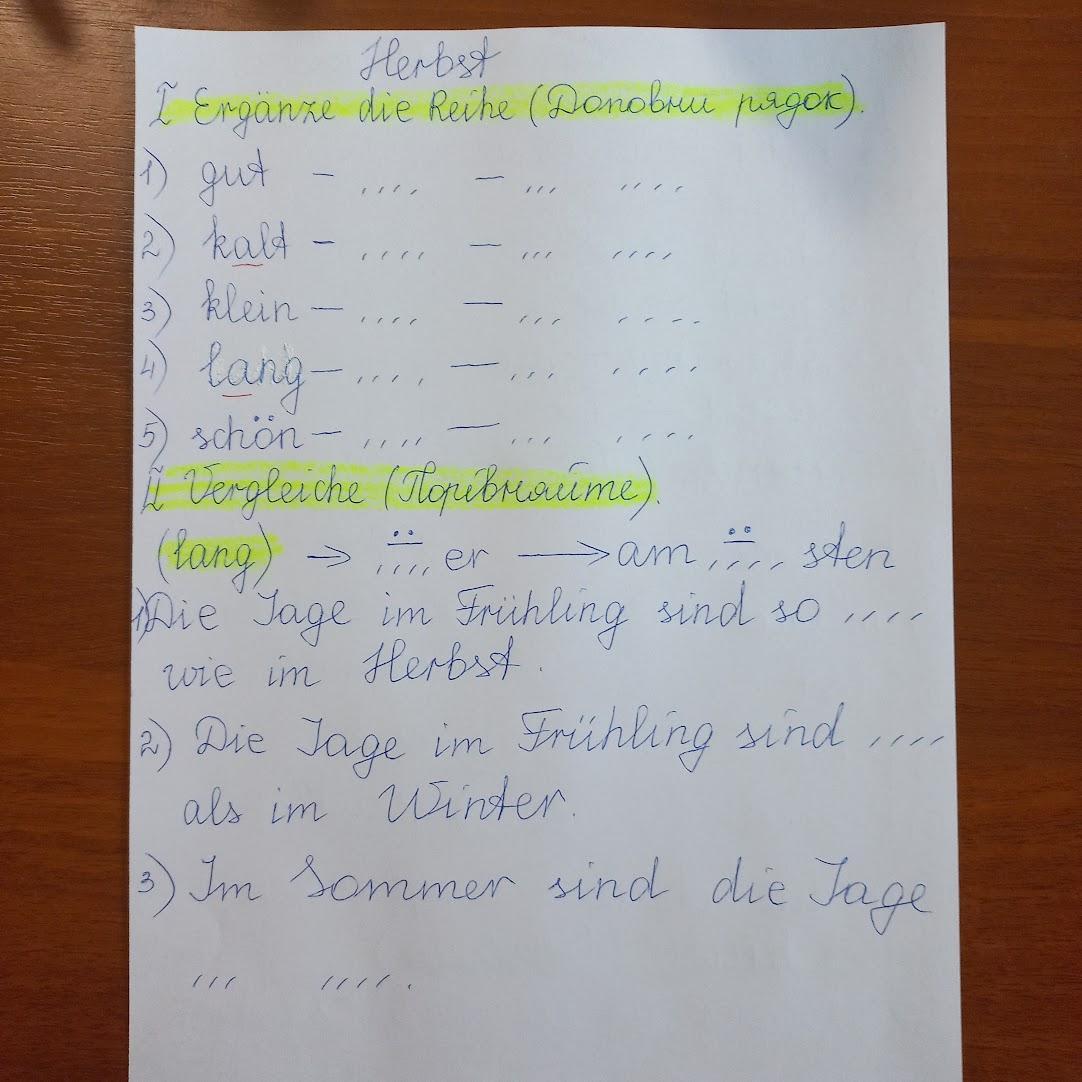 Herbst
I Ergänze die Reihe (Доповни рядок).
1) gut – ,,,, – ,,, ,,,,
2) kalt – ,,,, – ,,, ,,,,
3) klein – ,,,, – ,,, ,,,,
4) lang – ,,,, – ,,, ,,,,
5) schön – ,,,, – ,,, ,,,,
II Vergleiche (Порівняйте).
(lang) → ,̈,,, er → am ,̈,,, sten
1) Die Tage im Frühling sind so ,,,,
wie im Herbst.
2) Die Tage im Frühling sind ,,,,
als im Winter.
3) Im Sommer sind die Tage
,,, ,,,, .